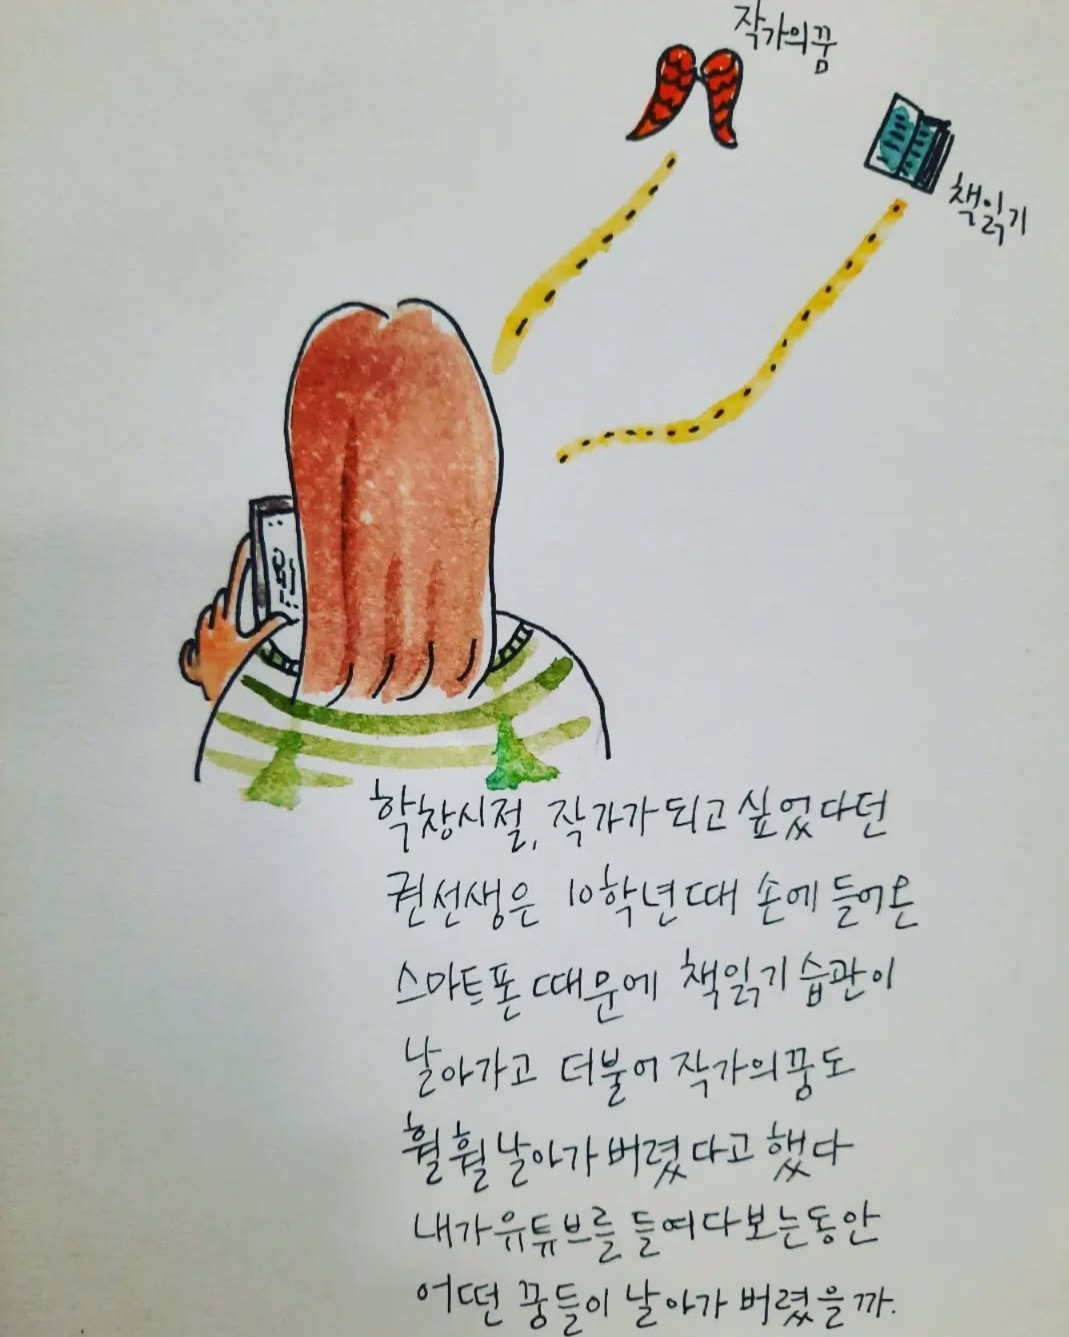 작가의꿈
책읽기
학창시절, 작가가 되고 싶었다던
권선생은 10학년때 손에 들어온
스마트폰 때문에 책읽기 습관이
날아가고 더불어 작가의꿈도
훨훨 날아가 버렸다고 했다
내가 유튜브를 들여다보는동안
어떤 꿈들이 날아가 버렸을까.